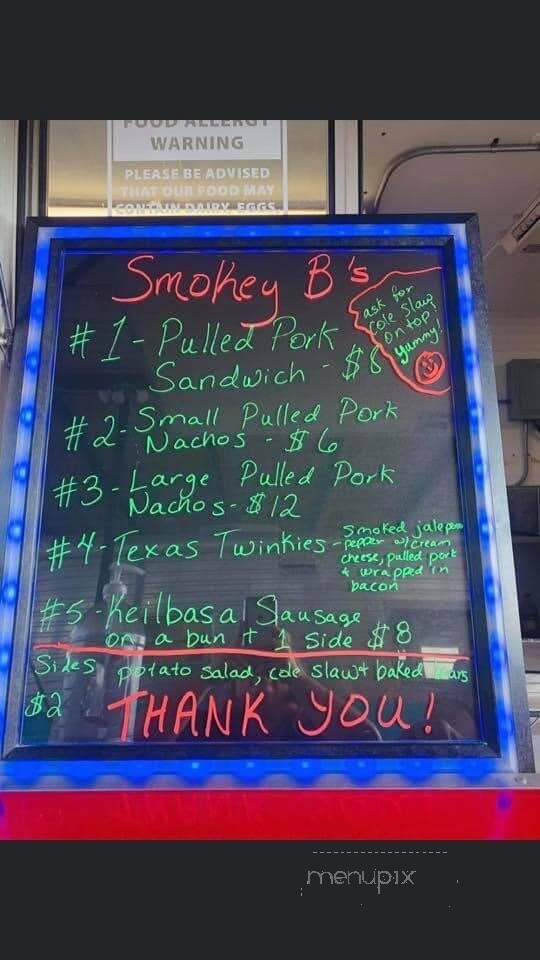 FOOD ALLERGY
WARNING
PLEASE BE ADVISED
THAT OUR FOOD MAY
CONTAIN DAIRY, EGGS,
Smokey B's
ask for
cole slaw
on top!
yummy!
#1 - Pulled Pork
Sandwich - $8
#2 - Small Pulled Pork
Nachos - $6
#3 - Large Pulled Pork
Nachos - $12
#4 - Texas Twinkies -
Smoked jalepeno
pepper w/ cream
cheese, pulled pork
& wrapped in
bacon
#5 - Keilbasa Sausage
on a bun + 1 side $8
Sides potato salad, cole slaw + baked beans
$2
THANK YOU!
menupix